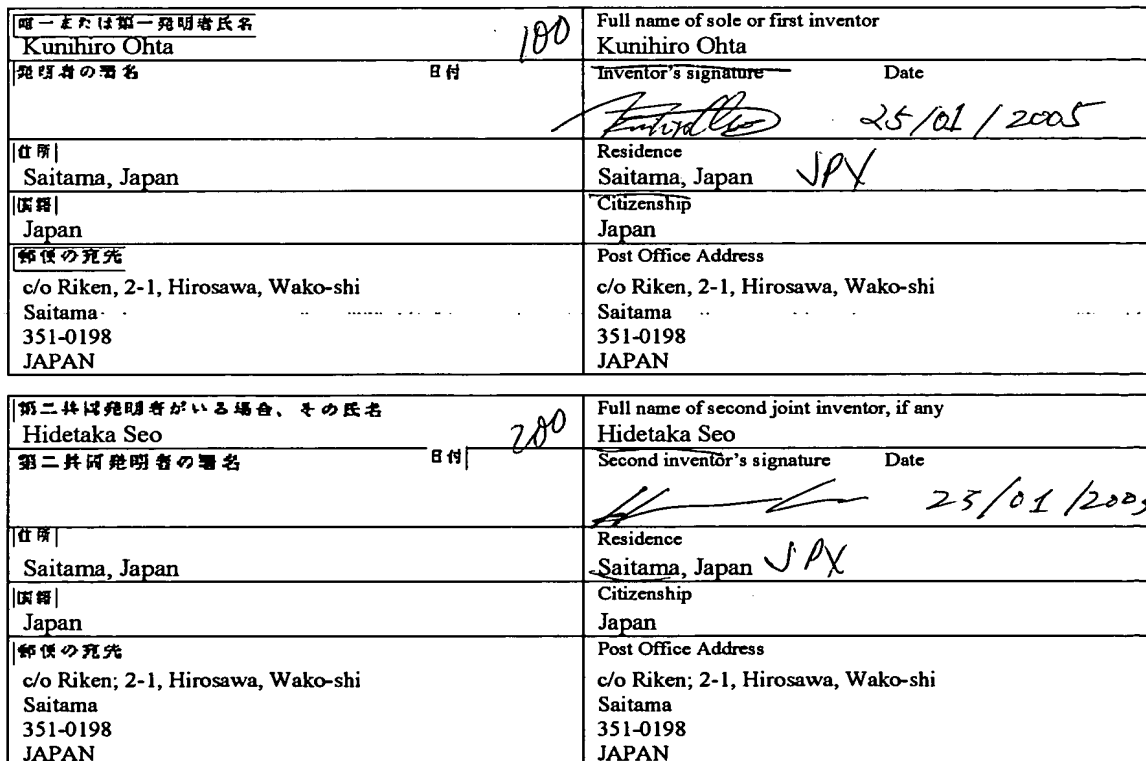 唯一または第一発明者氏名
Kunihiro Ohta 100
Full name of sole or first inventor
Kunihiro Ohta
発明者の署名 日付
Inventor's signature Date
25/01/2005
住所
Saitama, Japan
Residence
Saitama, Japan JPX
国籍
Japan
Citizenship
Japan
郵便の宛先
c/o Riken, 2-1, Hirosawa, Wako-shi
Saitama
351-0198
JAPAN
Post Office Address
c/o Riken, 2-1, Hirosawa, Wako-shi
Saitama
351-0198
JAPAN
第二共同発明者がいる場合、その氏名
Hidetaka Seo 200
Full name of second joint inventor, if any
Hidetaka Seo
第二共同発明者の署名 日付
Second inventor's signature Date
25/01/2005
住所
Saitama, Japan
Residence
Saitama, Japan JPX
国籍
Japan
Citizenship
Japan
郵便の宛先
c/o Riken; 2-1, Hirosawa, Wako-shi
Saitama
351-0198
JAPAN
Post Office Address
c/o Riken; 2-1, Hirosawa, Wako-shi
Saitama
351-0198
JAPAN